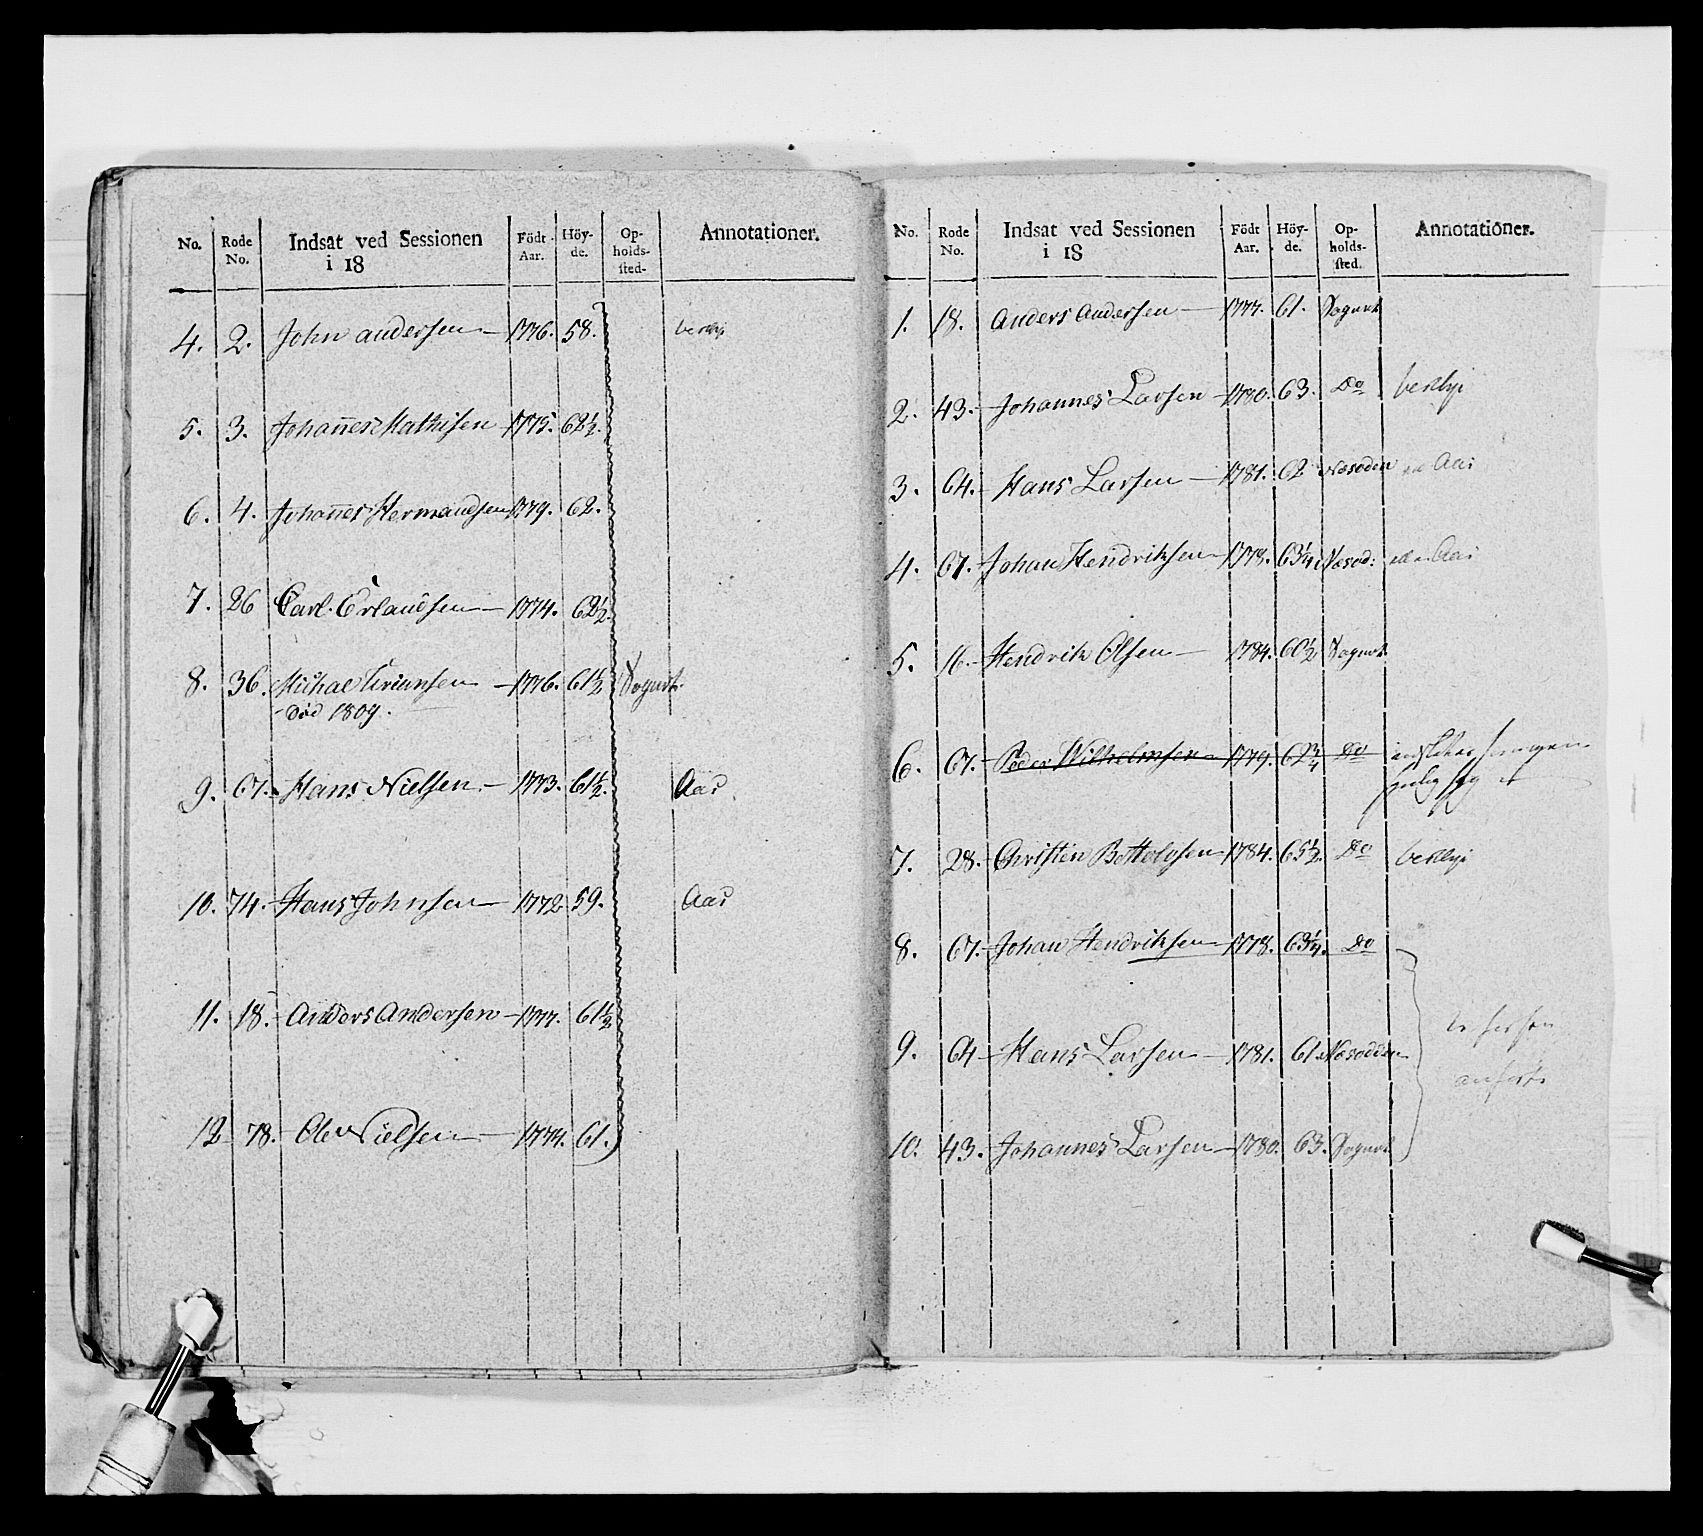 No. Rode No. Indsat ved Sessionen i 18 Födt Aar. Höy-de. Op-holds-sted. Annotationer.
4. 2. John andersen 1776. 58.
5. 3. Johannes Mathisen 1775. 62½.
6. 4. Johannes Hermandsen 1779. 62.
7. 26 Carl Erlandsen 1774. 62½.
8. 36. 1776. 61½
Död 1809.
9. 67. Hans Nielsen 1773. 61½. Aas
10. 74. Hans Johnsen 1772 59. Aas
11. 18. Anders Andersen 1777. 61½
12 78. Ole Nielsen 1774. 61.
No. Rode No. Indsat ved Sessionen i 18 Födt Aar. Höy-de. Op-holds-sted. Annotationer.
1. 18. Anders Andersen 1777. 61.
2. 43. Johannes Larsen 63. Do
3. 64. Hans Larsen 1781. 62 Næsodden Aas
4. 67. Johan Hendriksen 1778. 63¼ Næsod: Aas
5. 16. Hendrik Olsen 1784. 60½
6. 67. Peder Wilhelmsen 1779. 62¾ Do
7. 28. Christen Bottolvsen 1784. 65½. Do
8. 67. Johan Hendriksen 1778. 63¼. Do
9. 64 Hans Larsen 1781. 61. Næsodden
10. 43. Johannes Larsen 1780. 63.